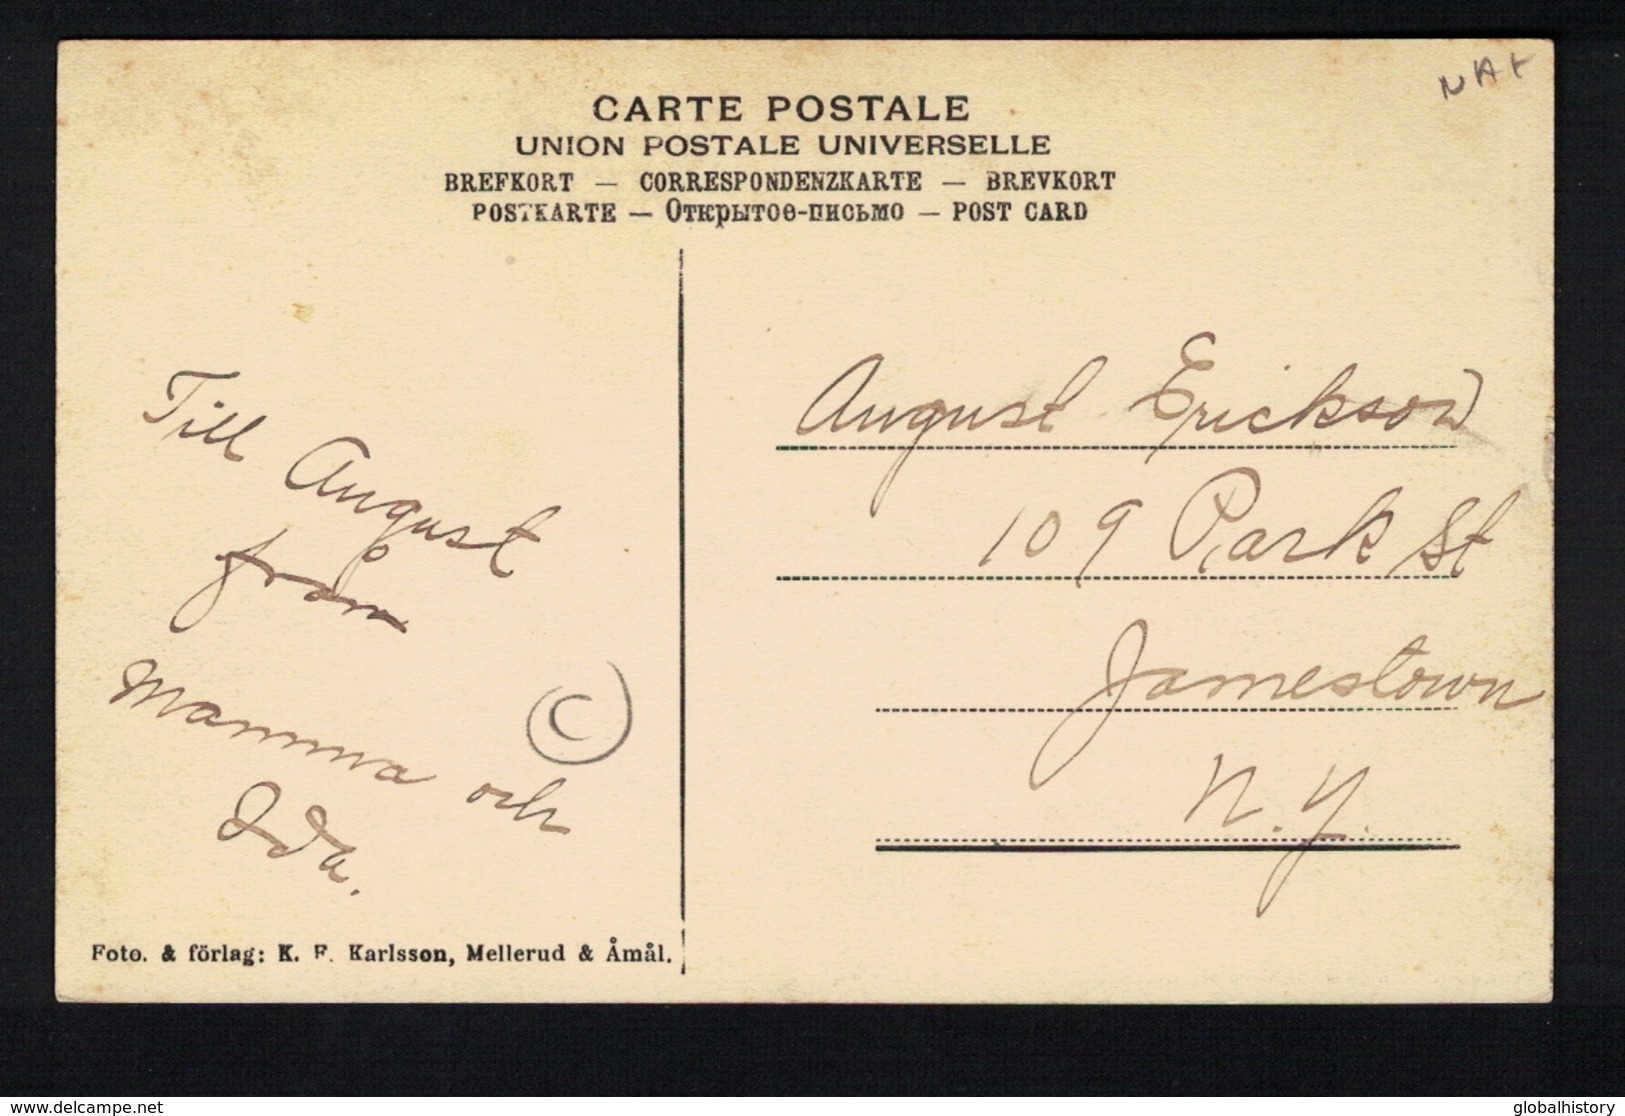 CARTE POSTALE
UNION POSTALE UNIVERSELLE
BREFKORT — CORRESPONDENZKARTE — BREVKORT
POSTKARTE — Открытое-письмо — POST CARD
Till August
från
Mamma och
Ida.
August Erickson
109 Park St
Jamestown
N.Y.
Foto. & förlag: K. F. Karlsson, Mellerud & Åmål.
www.delcampe.net
globalhistory